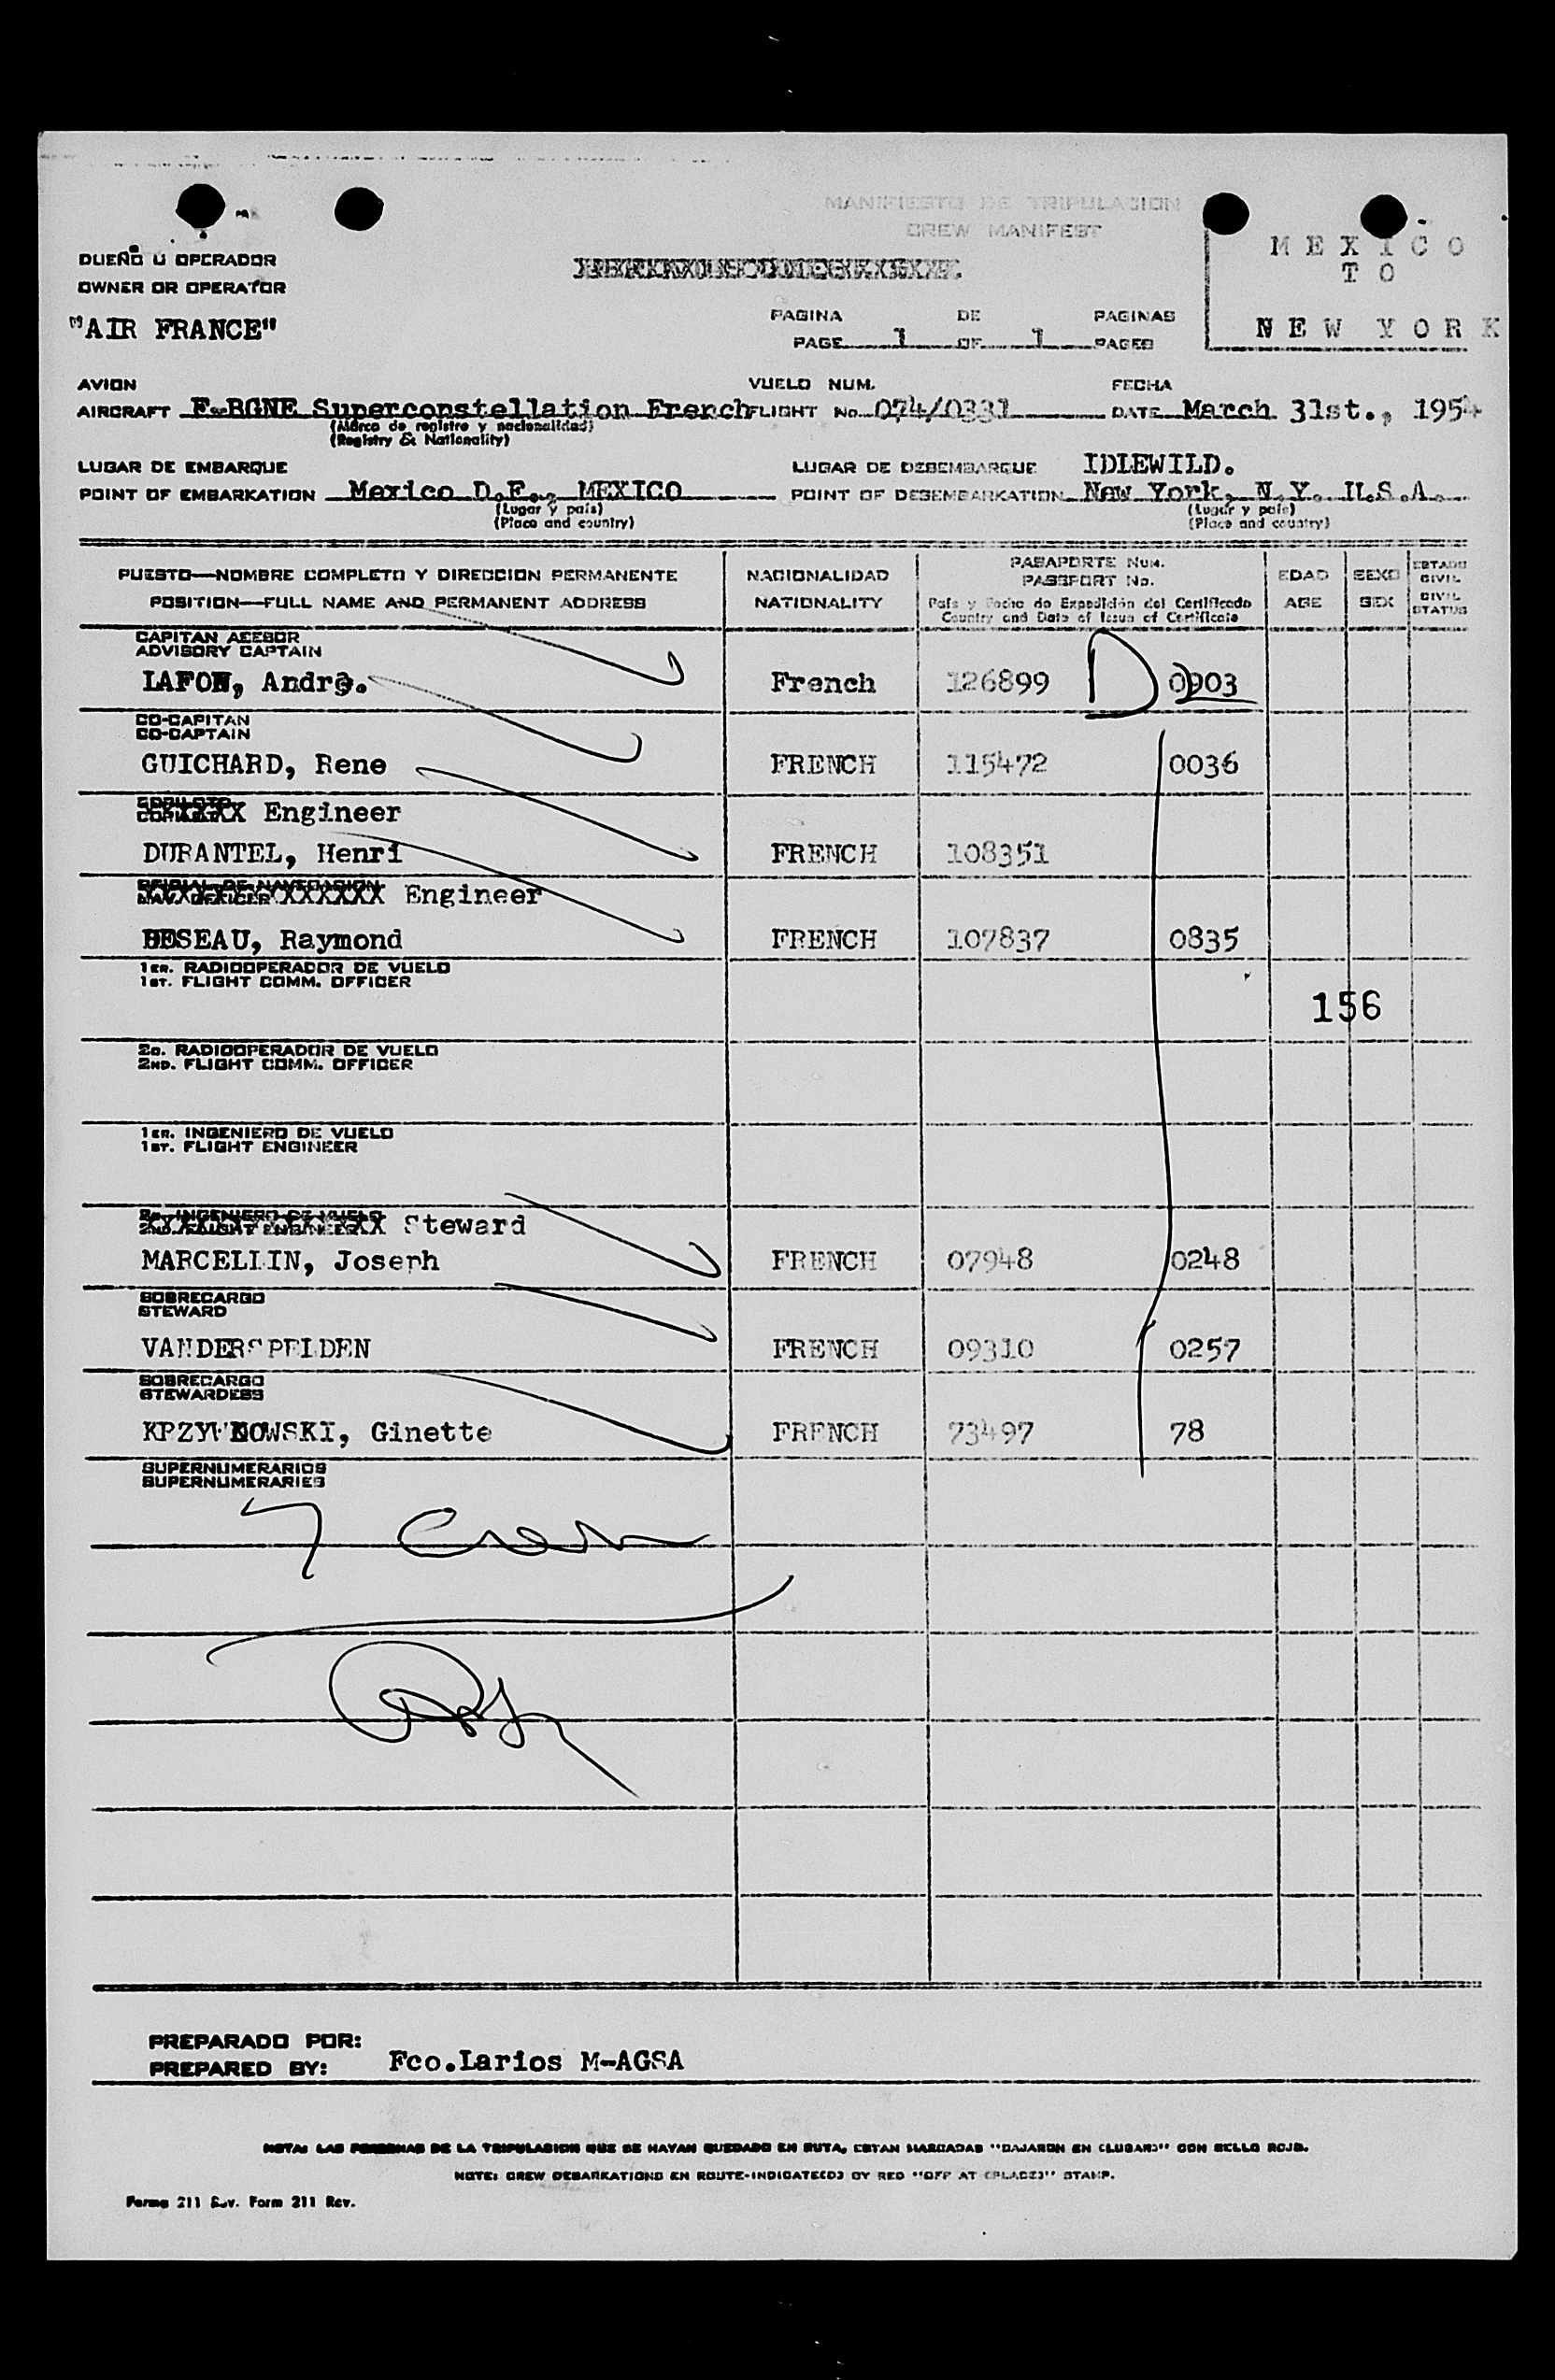 MANIFIESTO DE TRIPULACION
CREW MANIFEST
MEXICO
TO
NEW YORK
DUEÑO U OPERADOR
OWNER OR OPERATOR
"AIR FRANCE"
PAGINA DE PAGINAS
PAGE 1 OF 1 PAGES
AVION VUELO NUM. FECHA
AIRCRAFT F-BGNE Superconstellation French FLIGHT No. 074/0331 DATE March 31st., 1954
(Marca de registro y nacionalidad)
(Registry & Nationality)
LUGAR DE EMBARQUE LUGAR DE DESEMBARQUE IDLEWILD.
POINT OF EMBARKATION Mexico D.F., MEXICO POINT OF DESEMBARKATION New York, N.Y. U.S.A.
(Lugar y país) (Lugar y país)
(Place and country) (Place and country)
PUESTO—NOMBRE COMPLETO Y DIRECCION PERMANENTE NACIONALIDAD PASAPORTE NUM. EDAD SEXO ESTADO CIVIL
POSITION—FULL NAME AND PERMANENT ADDRESS NATIONALITY PASSPORT No. AGE SEX CIVIL STATUS
País y Fecha de Expedición del Certificado
Country and Date of Issue of Certificate
CAPITAN ASESOR
ADVISORY CAPTAIN
LAFON, Andre. French 126899 D 0903
CO-CAPITAN
CO-CAPTAIN
GUICHARD, Rene FRENCH 115472 0036
Engineer
DURANTEL, Henri FRENCH 108351
Engineer
BESEAU, Raymond FRENCH 107837 0835
1ER. RADIOOPERADOR DE VUELO
1ST. FLIGHT COMM. OFFICER
156
2O. RADIOOPERADOR DE VUELO
2ND. FLIGHT COMM. OFFICER
1ER. INGENIERO DE VUELO
1ST. FLIGHT ENGINEER
Steward
MARCELLIN, Joseph FRENCH 07948 0248
SOBRECARGO
STEWARD
VANDERSPELDEN FRENCH 09310 0257
SOBRECARGO
STEWARDESS
Ginette FRENCH 73497 78
SUPERNUMERARIOS
SUPERNUMERARIES
7 Crew
PREPARADO POR:
PREPARED BY: Fco.Larios M-AGSA
NOTA: LAS PERSONAS DE LA TRIPULACION QUE SE HAYAN QUEDADO EN RUTA, ESTAN MARCADAS "BAJARON EN (LUGAR)" CON SELLO ROJO.
NOTE: CREW DEBARKATIONS EN ROUTE-INDICATE(D) BY RED "OFF AT (PLACE)" STAMP.
Forma 211 Rev. Form 211 Rev.